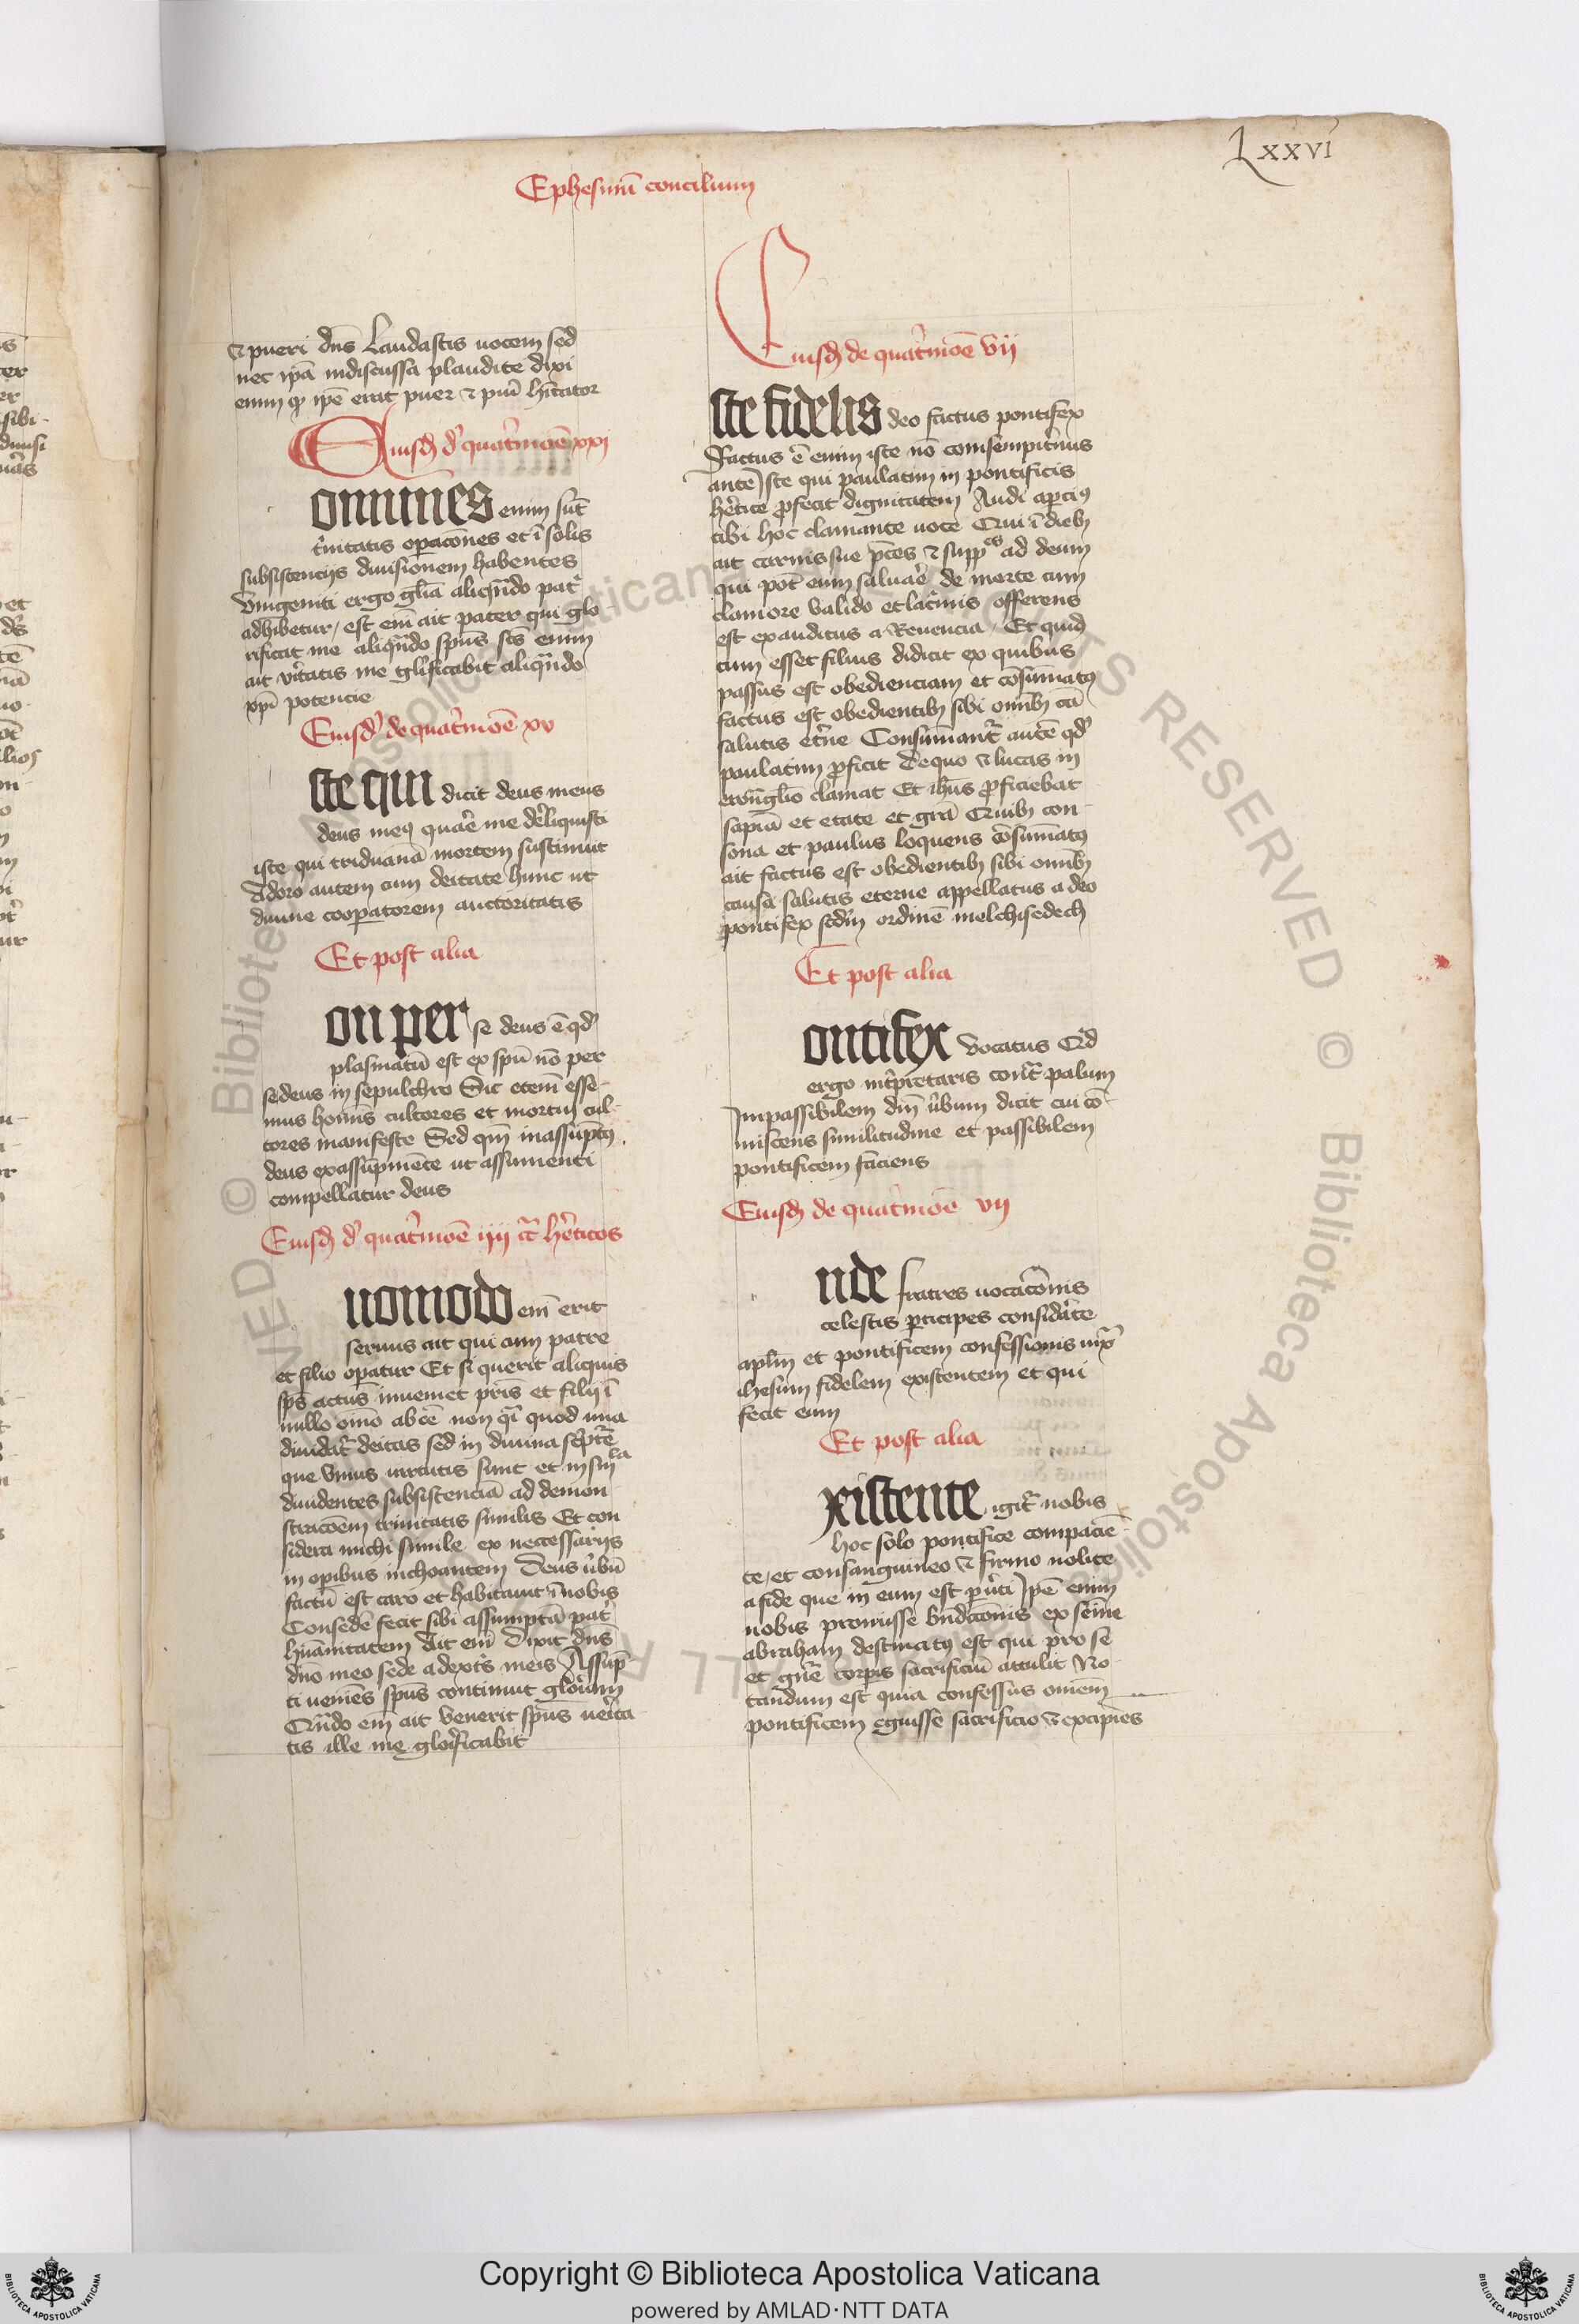 Lxxvi
Ephesinū concilium
⁊ pueri dn̄s Laudastis uocem sed
nec ip̄a indiscussa plaudite dixi
enim ꝙ ip̄e erat puer ⁊
Eiusdꝫ d̓ quat̓nioē xxi
ommnes enim sūt
t̓nitatis oꝑac̄ones et ī solis
subsistencijs diuisionem habentes
Vnigeniti ergo gl̄ia aliqn̄do pat̓
adhibetur / est em̄ ait pater qui glo
rificat me aliqn̄do sp̄us sc̄s enim
ait v̓itatis me gl̓ificabit aliqn̄do
xp̄i potencie
Eiusd̓ de quat̓nioē xv
ste qui dicit deus meus
deus meꝰ quar̄e me der̄liquisti
iste qui triduanā mortem sustinuit
Adoro autem cum deitate hunc ut
diuine cooꝑatorem auctoritatis
Et post alia
on per se deus ē qd̓
plasmatū est ex sp̄u nō per
se deus in sepulchro Sic etem̄ esse
mus homīs cultores et mortuj cul-
tores manifeste Sed qm̄ in assūptꝰ
deus ex assūpmēte ut assumenti
compellatur deus
Eiusdꝫ d̓ quat̓nioē iiij ct̄ᵃ her̄ticos
uomodo em̄ erit
seruus ait qui cum patre
et filio oꝑatur Et si querit aliquis
sp̄s actus inueniet pr̄is et filij ī
nullo oīno abcē non qī quod una
diuidat̓ deitas sed in diuina scp̄tr̄e
que Vnius uirtutis sunt et in sinᵍˡᵃ
diuidentes subsistenciā ad demon
stracōem trinitatis similis Et con
sidera michi simile ex necessarijs
in opibus inchoantem Deus ūbū
factū est caro et habitauit ī nobis
Consedē fecit sibi assumptā pat̓
huānitatem Ait em̄ Dixit dn̄s
dn̄o meo sede a dext̓s meis Assūp-
ti ueniēs sp̄us continuit glor̄iam
Qn̄do em̄ ait Venerit sp̄us uer̄ita
tis ille me glor̄ificabit
Eiusdꝫ de quat̓nioē Vij
ste fidelis deo factus pontifex
Factus ē enim iste nō consempit̓nus
antē Iste qui paulatim in pontificis
her̄tice ꝓfecit dignitatem Audi aꝑciꝰ
tibi hoc clamante uoce Qui ī diebꝫ
ait carnis sue p̄ces ⁊ suppᵉˢ ad deum
qui pot̄ eum saluar̄e de morte cum
clamore valido et lacr̄imis offerens
est exauditus a Reuerencia Et quidꝫ
cum esset filius didicit ex quibus
passus est obedienciam et cōsūmatꝰ
factus est obedientibꝫ sibi omībꝫ cā
salutis et̄ne Consūmant̓ autē qd̓
paulatim ꝓficit De quo ⁊ lucas in
ewn̄glio clamat Et ihūs ꝓficiebat
sapīa et etate et gr̄a Quibꝫ con
sona et paulus loquens cōsūmatꝰ
ait factus est obedientibꝫ sibi omībꝫ
causa salutis eterne appellatus a deo
pontifex scd̓m ordinē melchisedech
Et post alia
ontifex vocatus Qd̓
ergo int̓pretaris cont̓ palum
Impassibilem dm̄ ūbum dicit cui cō
miscens similitudine et passibilem
pontificem faciens
Eiusdꝫ de quat̓nioē vij
nde fratres uocac̄onis
celestis ꝑticipes considar̄te
apl̄m et pontificem confessionis nr̄e
ihesum fidelem existentem et qui
fecit eum
Et post alia
xistente igit̓ nobis
hoc solo pontifice compaciē-
te / et consanguineo ⁊ firmo nolite
a fide que in eum est ꝑūti Ip̄e enim
nobis promisse bn̄dicōnis ex sēine
abraham destinatꝰ est qui pro se
et gn̄e corꝑis sacrificiū attulit No-
tandum est quia confessus oīnem
pontificem eguisse sacrificio ⁊ excipiēs
Copyright © Biblioteca Apostolica Vaticana
powered by AMLAD·NTT DATA